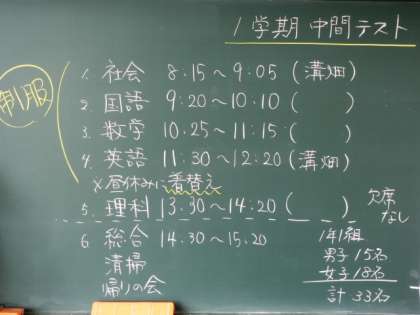 1学期 中間テスト
制服
1. 社会 8.15～9.05 (溝畑)
2. 国語 9:20～10:10 ( )
3. 数学 10.25～11:15 ( )
4. 英語 11:30～12:20 (溝畑)
×昼休みに着替え
5. 理科 13.30～14:20 ( )
欠席
なし
6. 総合 14.30～15.20
清掃
帰りの会
1年1組
男子 15名
女子 18名
計 33名